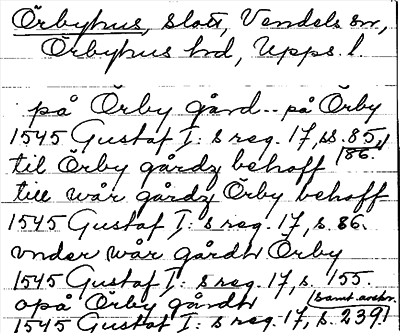 Örbyhus, slott, Vendels sn,
Örbyhus hd, Upps. l.
på Örby gård.. på Örby
1545 Gustaf I:s reg. 17, s. 85,
86.
til Örby gårdz behoff
till wår gårdz Örby behoff
1545 Gustaf I:s reg. 17, s. 86.
vnder wår gårdh Örby
1545 Gustaf I:s reg. 17, s. 155.
opå Örby gårdh (samt. avskr.
1545 Gustaf I:s reg. 17, s. 239)